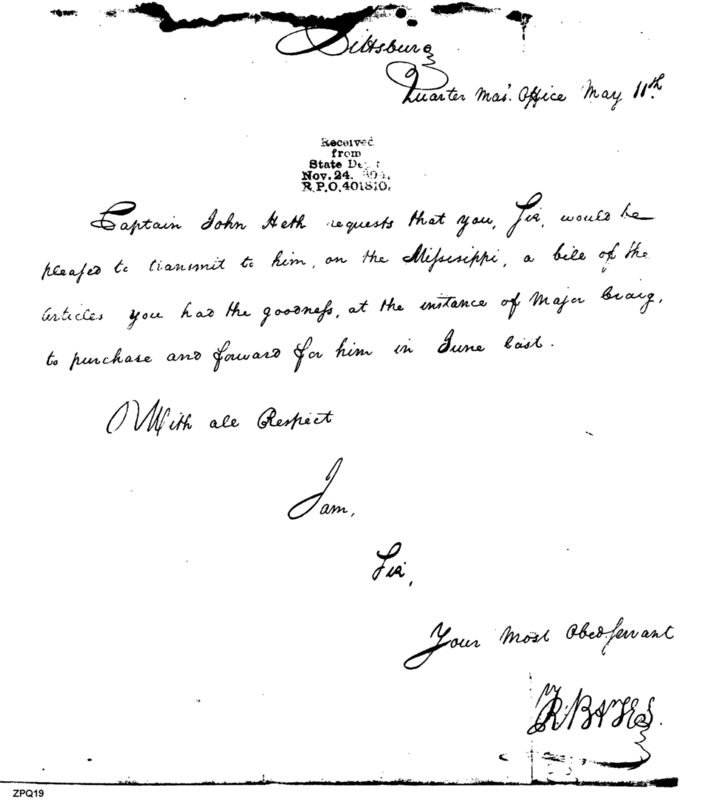 Pittsburg
Quarter Mas'. Office May 11th.
Received
from
State De
Nov. 24.
R.P.O. 401810.
Captain John Heth requests that you, Sir, would be
pleased to transmit to him, on the Missisippi, a bill of the
articles you had the goodness, at the instance of Major Craig,
to purchase and forward for him in June last.
With all Respect
I am,
Sir,
Your most Obed Servant
ZPQ19